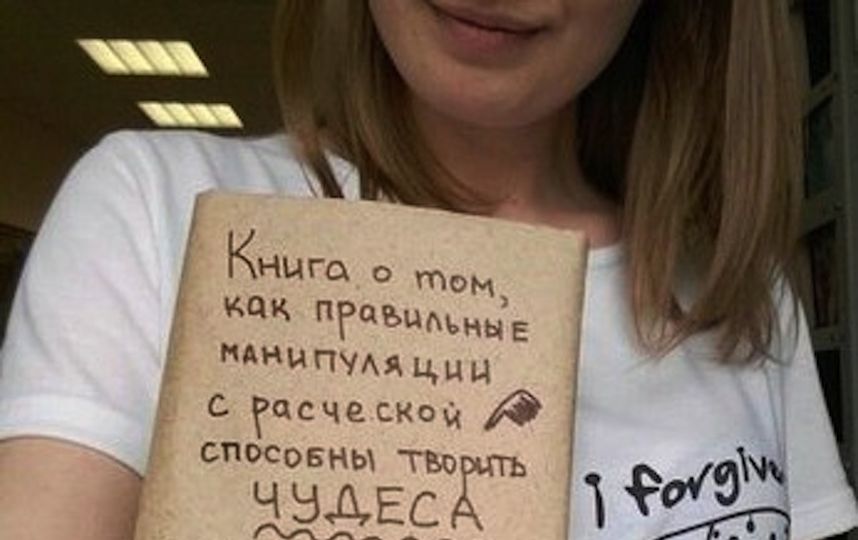 Книга о том,
как правильные
манипуляции
с расческой
способны творить
ЧУДЕСА
i forgive